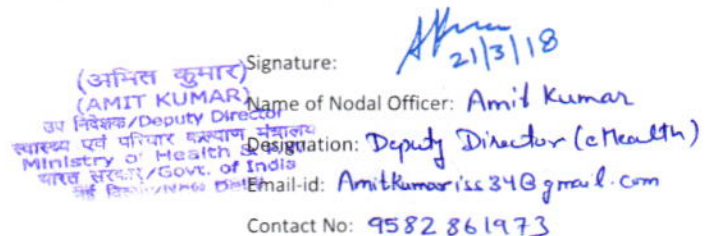 (अमित कुमार)
(AMIT KUMAR)
उप निदेशक/Deputy Director
स्वास्थ्य एवं परिवार कल्याण मंत्रालय
Ministry of Health &
भारत सरकार/Govt. of India
नई
Signature:
21/3/18
Name of Nodal Officer: Amit Kumar
Designation: Deputy Director (eHealth)
Email-id: Amitkumariss34@gmail.com
Contact No: 9582861973